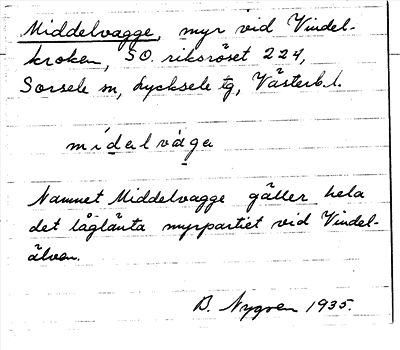 Middelvagge, myr vid Vindel-
kroken, SO. riksröset 224,
Sorsele sn, Lycksele tg, Västerb. l.
mídalvàga
Namnet Middelvagge gäller hela
det låglänta myrpartiet vid Vindel-
älven.
B. Nygren 1935.